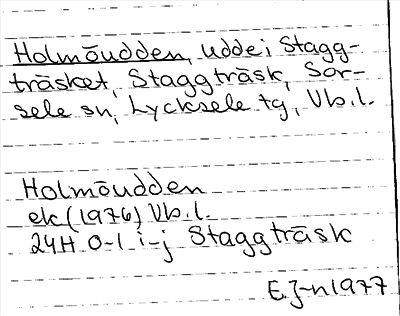 Holmöudden, udde i Stagg-
träsket, Staggträsk, Sor-
sele sn, Lycksele tg, Vb.l.
Holmöudden
ek (1976) Vb.l.
24H 0-1 i-j Staggträsk
E.J-n 1977